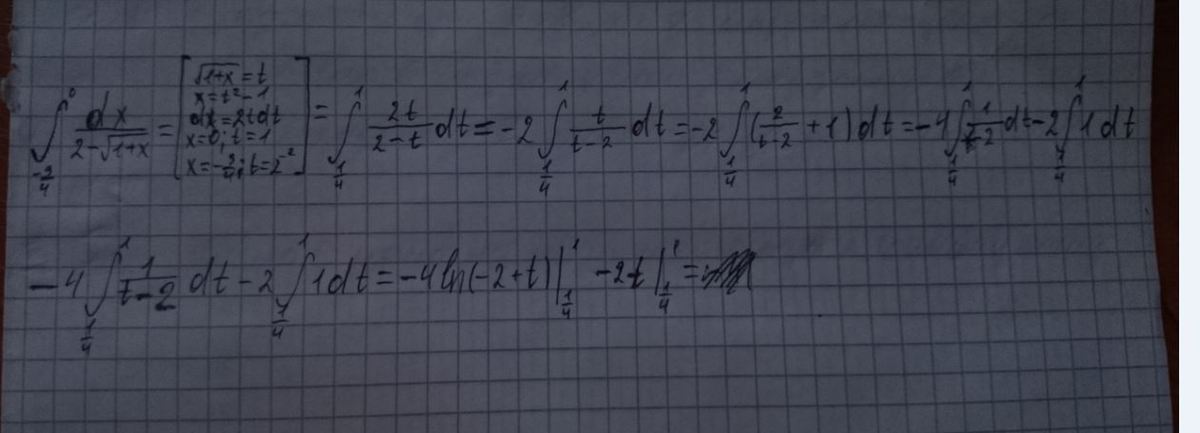 ∫_{-2/4}^{0} dx/(2-√(1+x)) = [√(1+x) = t
x = t² - 1
dx = 2t dt
x = 0; t = 1
] = ∫_{1/4}^{1} 2t/(2-t) dt = -2 ∫_{1/4}^{1} t/(t-2) dt = -2 ∫_{1/4}^{1} (2/(t-2) + 1) dt = -4 ∫_{1/4}^{1} 1/(t-2) dt - 2 ∫_{1/4}^{1} 1 dt
-4 ∫_{1/4}^{1} 1/(t-2) dt - 2 ∫_{1/4}^{1} 1 dt = -4 ln(-2+t) |_{1/4}^{1} - 2t |_{1/4}^{1} =